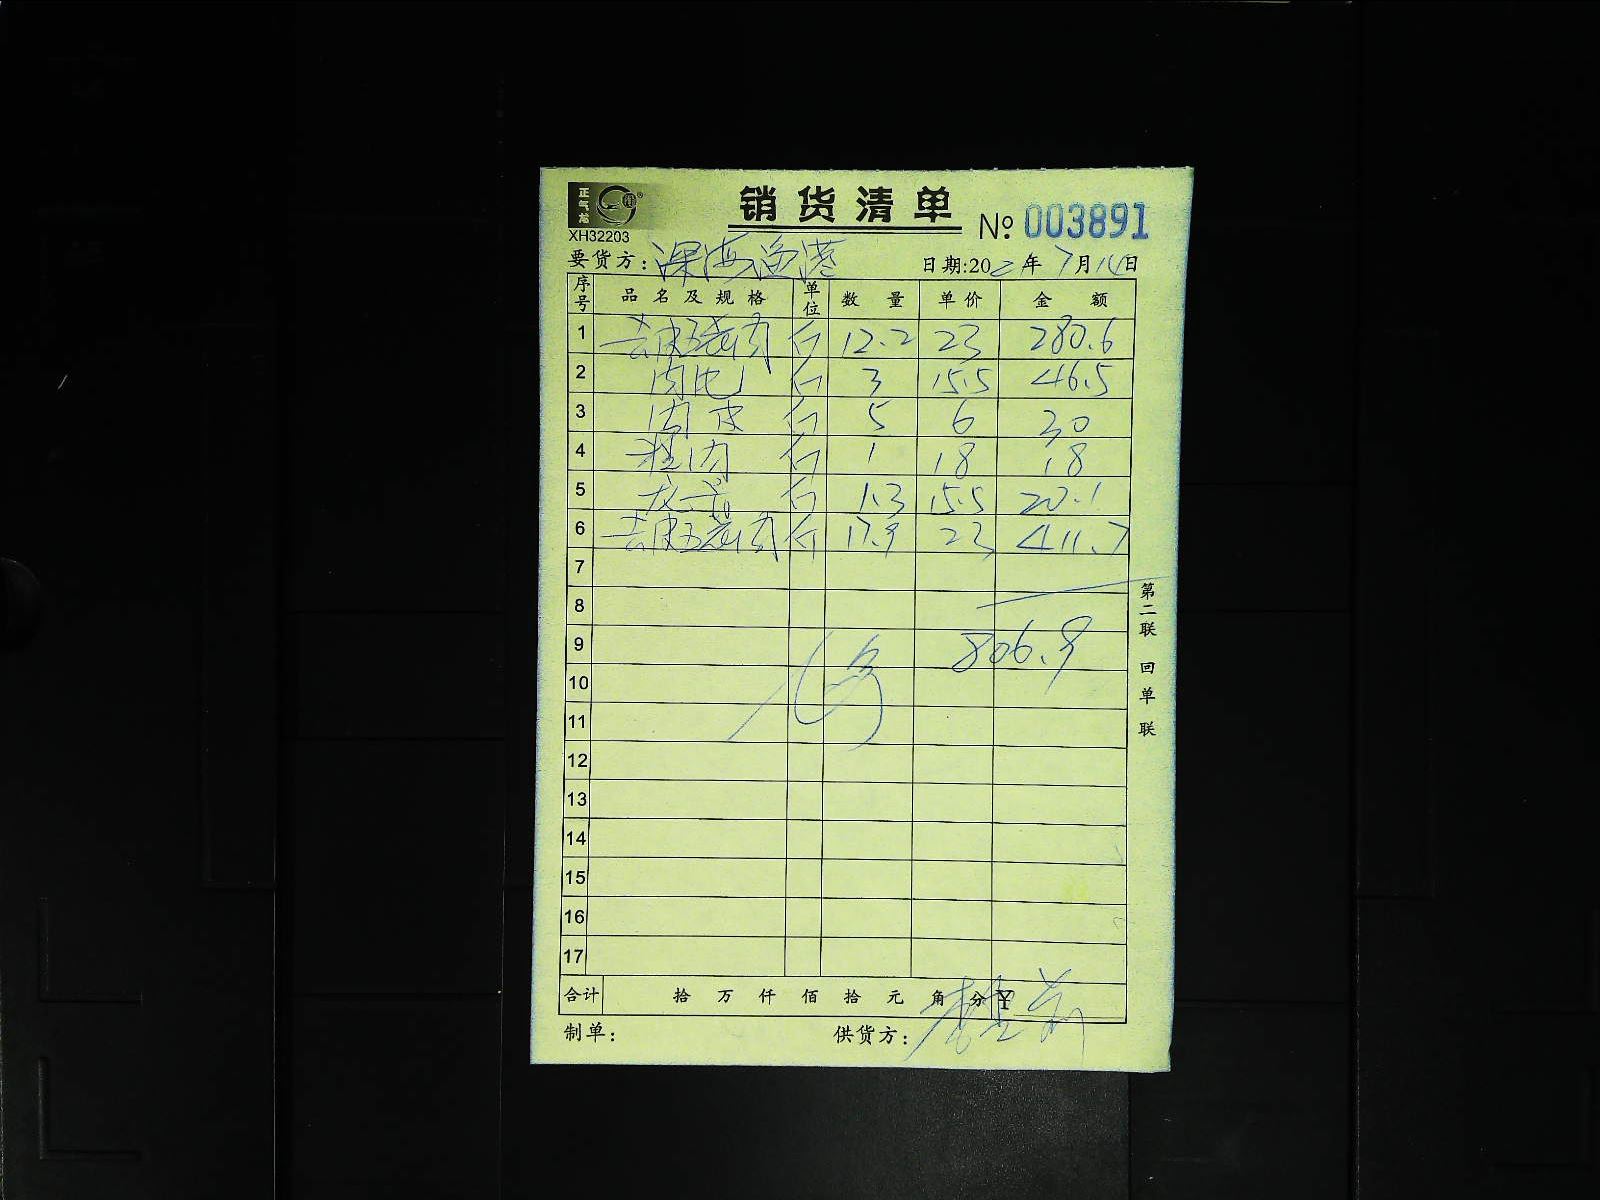 正气龙
XH32203
销货清单
№ 003891
要货方: 深海渔港
日期:202 年 7月14日
序号 品名及规格 单位 数量 单价 金额
1 去皮五花肉 斤 12.2 23 280.6
2 肉 斤 3 15.5 46.5
3 肉皮 斤 5 6 30
4 肉 斤 1 18 18
5 龙骨 斤 1.3 15.5 20.1
6 去皮五花肉 斤 17.9 23 411.7
7
8
9 806.9
10
11
12
13
14
15
16
17
合计 拾 万 仟 佰 拾 元 角 分 ¥
制单: 供货方:
第二联 回单联